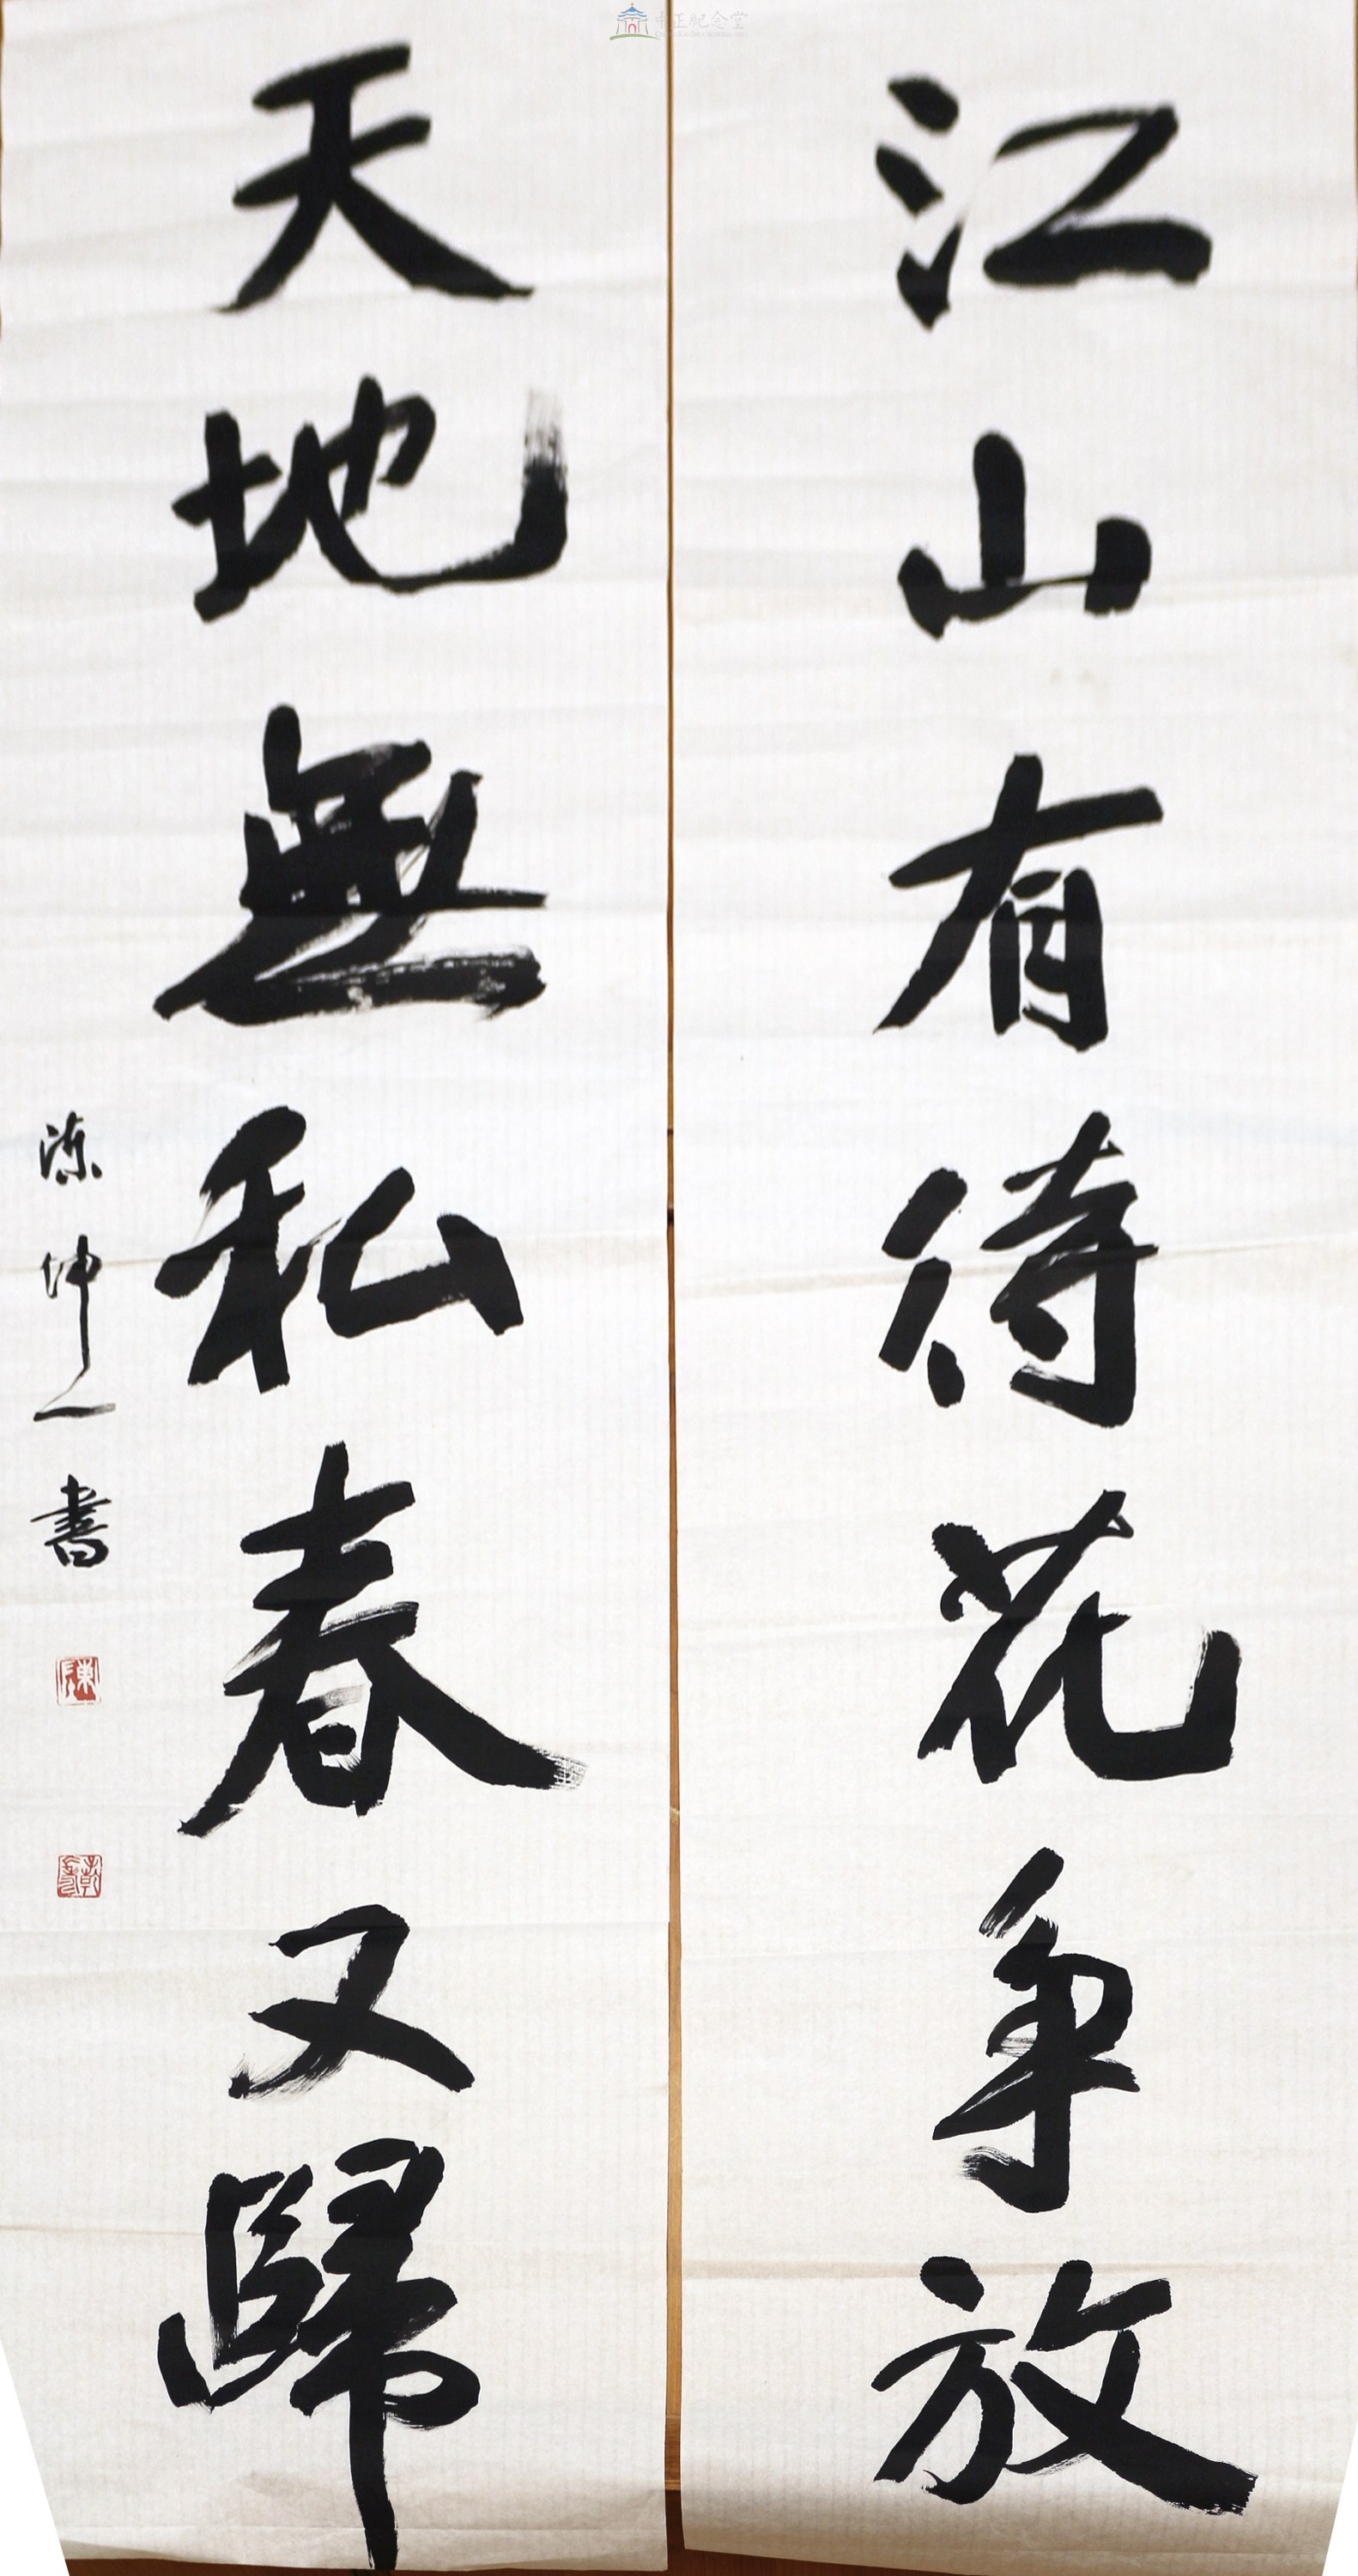 中正紀念堂
江山有待花爭放
天地無私春又歸
陳坤一書
陳